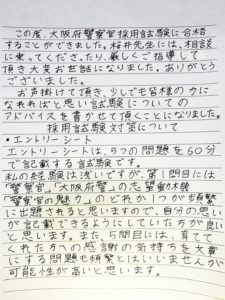 この度、大阪府警察官採用試験に合格
することができました。桜井先生には、相談
に乗ってくださったり、厳しくご指導して
頂き大変お世話になりました。ありがとう
ございました。
お声掛けて頂き、少しでも皆様の力に
なれればと思い試験についての
アドバイスを書かせて頂くことになりました。
採用試験対策について
・エントリーシート
エントリーシートは、5つの問題を60分
で記載する試験です。
私の経験は浅いですが、第1問目には
「警察官」「大阪府警」の志望動機
「警察官の魅力」のどれか1つが頻繁
に出題されると思いますので、自分の思い
が記載できるようにしていた方が良い
と思います。また、5問目には、育てて
くれた方への感謝の気持ちを大事
にする問題も頻繁とはいいませんが
可能性が高いと思います。